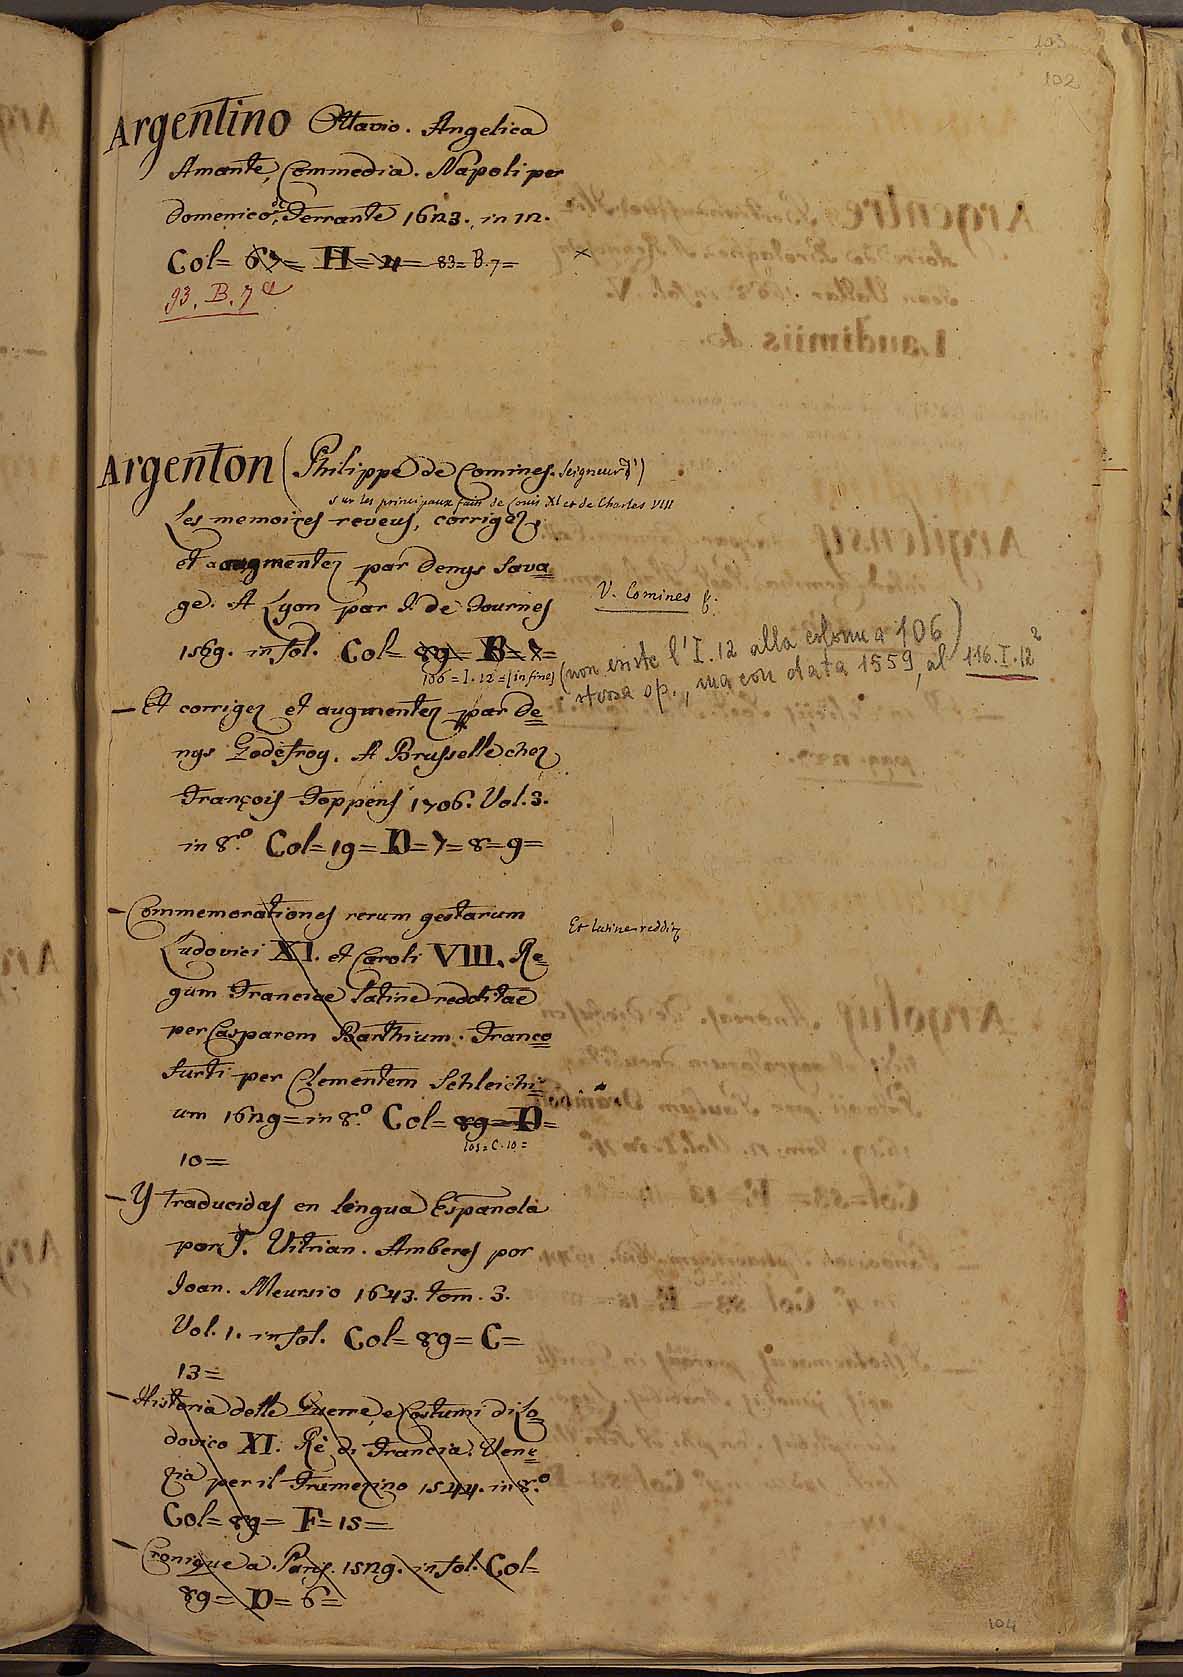 103
102
Argentino Ottavio. Angelica
Amante, Commedia. Napoli per
domenico de Ferrante 1623. in 12.
Col= 67= H= 4= 83= B.7=
93. B. 7
Argenton (Philippe de Comines. Seigneur d')
sur les principaux faits de Louis XI et de Charles VIII
Les memoires reveus, corrigez,
et augmentez par Denys Sava=
ge. A Lyon par J. de Tournes
1569. in fol. Col= 89= B= 7=
V. Comines f.
106=I.12=(in fine)
(non esiste l'I.12 alla colonna 106)
stessa op., ma con data 1559, al 116.I.12 2
— Et corrigez et augmentez par De=
nys Godefroy. A Brusselle chez
François Foppens 1706. Vol. 3.
in 8.º Col= 19= D= 7= 8= 9=
— Commemorationes rerum gestarum
Et latine reddit
Ludovici XI. et Caroli VIII. Re=
gum Franciae latine redditae
per Casparem Barthium. Franco=
furti per Clementem Schleichi=
um 1629= in 8.º Col= 89= D=
103=C.10=
10=
— Y traducidas en lengua Espanola
por J. Vitrian. Amberes por
Joan. Meursio 1643. tom. 3.
Vol. 1. in fol. Col= 89= C=
13=
— Historia delle Guerre, e Costumi di Lo=
dovico XI. Rè di Francia. Vene=
zia per il Tramezino 1544. in 8.º
Col= 89= F= 15=
— Cronique a Paris. 1529. in fol. Col=
89= D= 6=
104